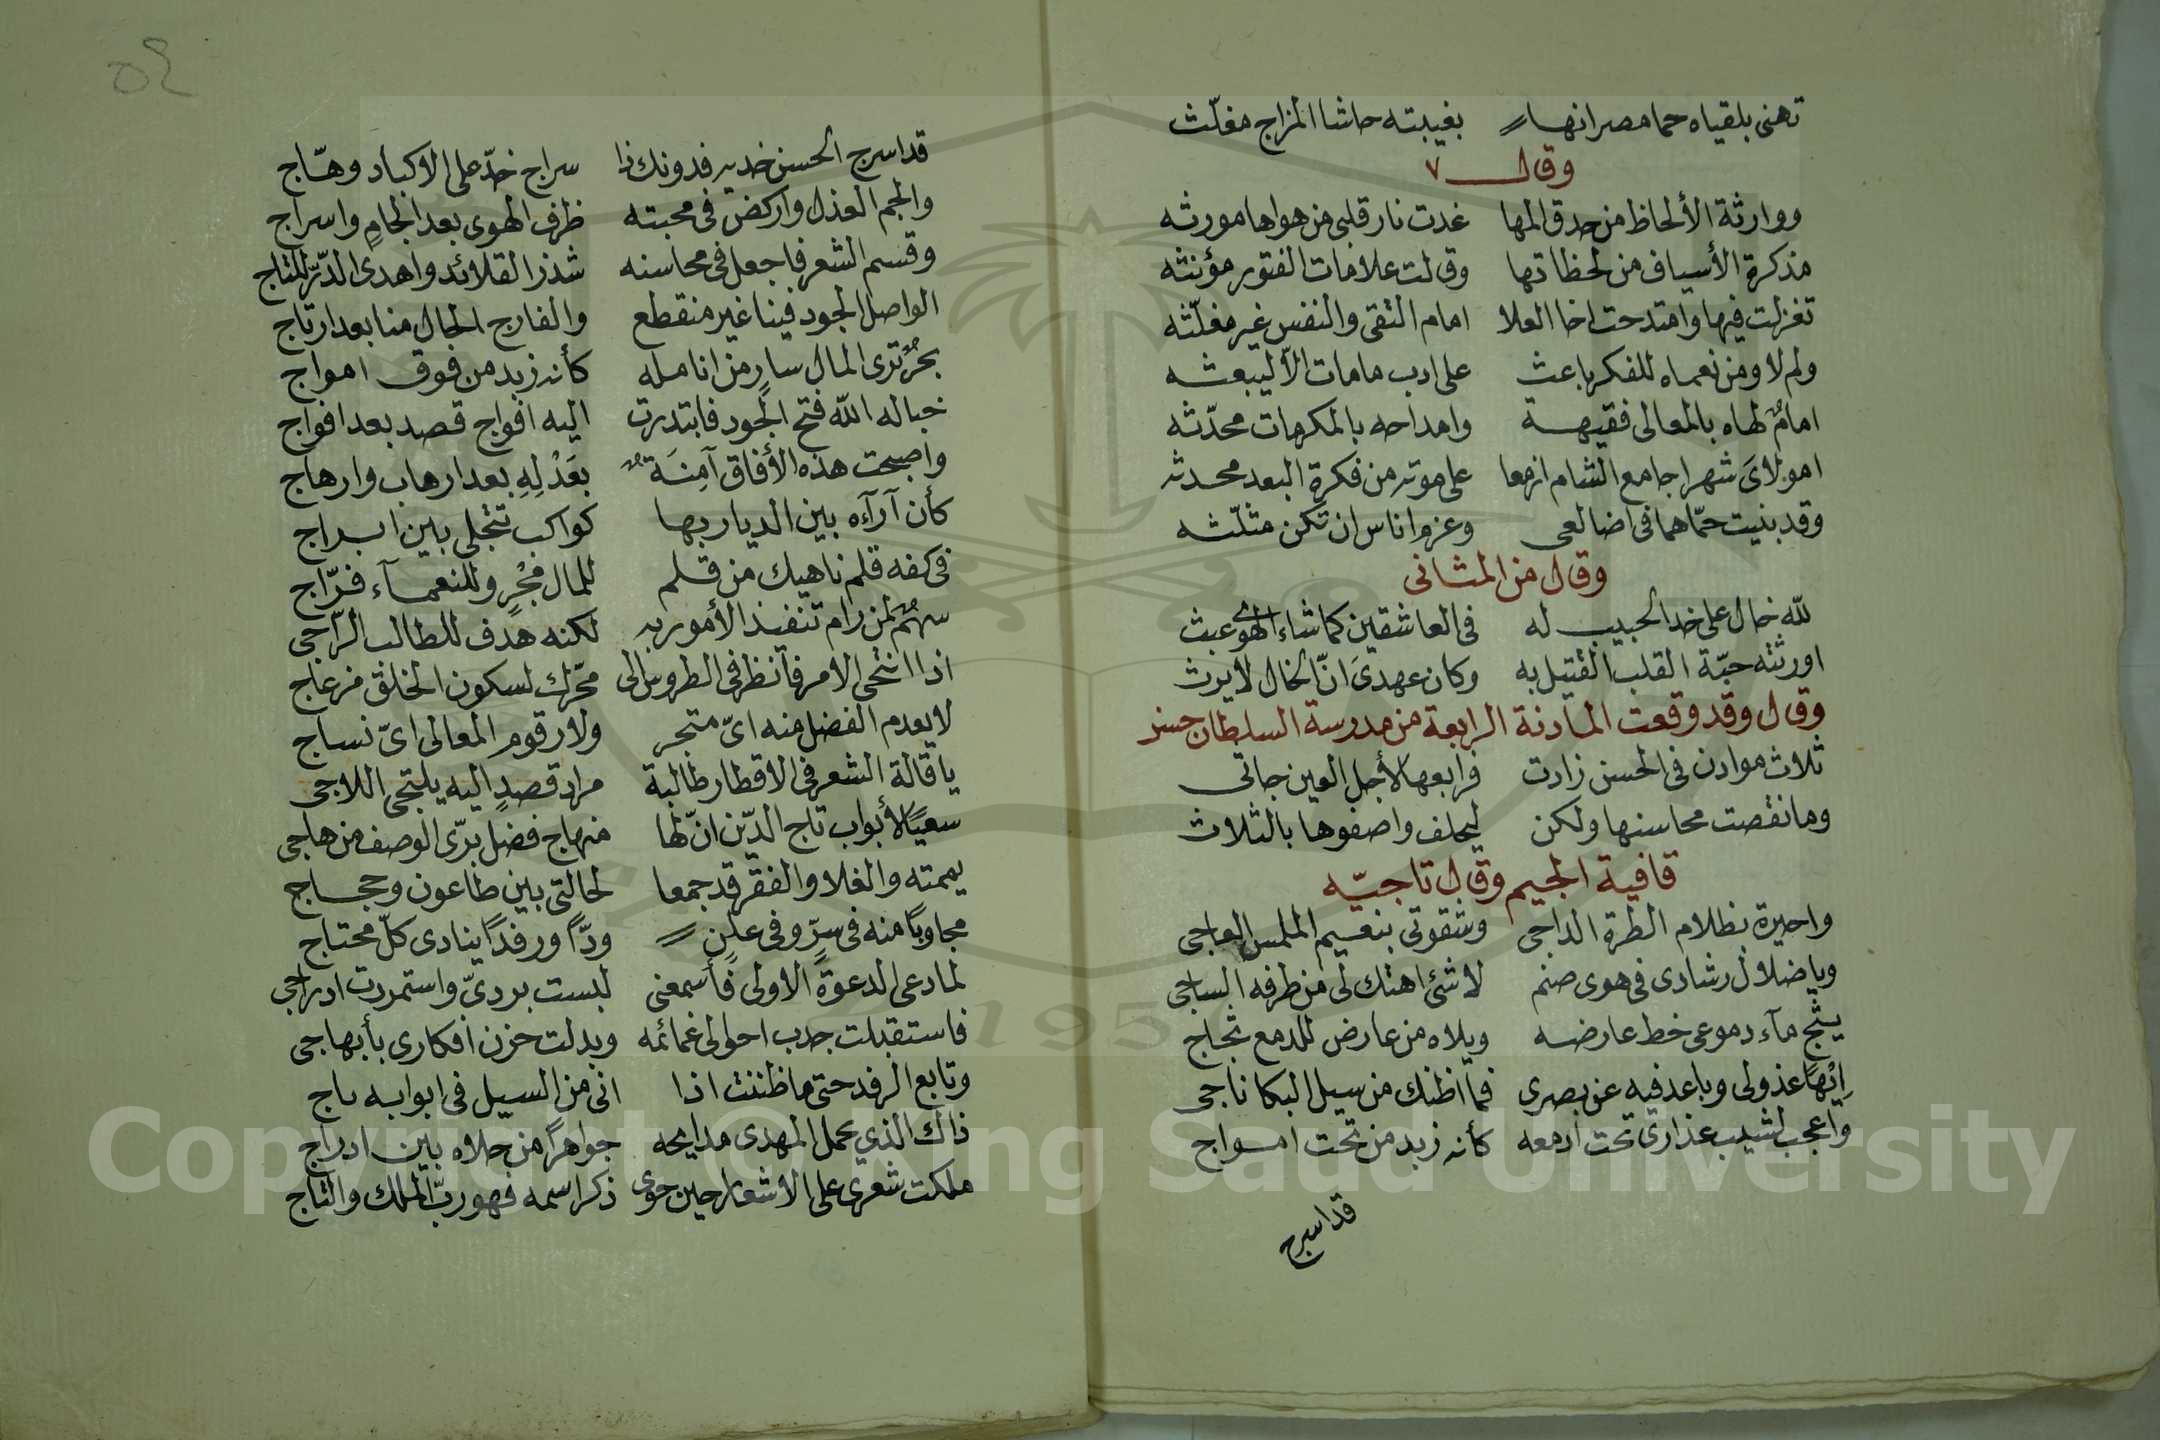 تهنى بلقياه حما مصر انها بغيبته حاشا المزاج مغلّث
وقال ٧
ووارثة الألحاظ من حدق المها غدت نار قلبى من هواها مورثه
مذكرة الأسياف من لحظاتها وقالت علامات الفتور مؤنثه
تغزلت فيها وامتدحت اخا العلا امام التقى والنفس غير مغلّثه
ولم لا ومن نعماه للفكر باعث على ادب مامات الّا ليبعثه
امامٌ لهاه بالمعالى فقيهة وامداحه بالمكرمات محدّثه
امولاىَ شهرا جامع الشام ازمعا على موته من فكرة البعد محدثه
وقد بنيت حمّاهما فى اضالعى وعزم اناس ان تكن مثلّثه
وقال من المثانى
لله خال على خد الحبيب له فى العاشقين كما شاء الهوى عبث
اورثته حبّة القلب القتيل به وكان عهدىَ انّ الخال لا يرث
وقال وقد وقعت المادنة الرابعة من مدرسة السلطان حسن
ثلاث موادن فى الحسن زادت فرابعها لأجل العين جاتى
وما نقصت محاسنها ولكن ليحلف واصفوها بالثلاث
قافية الجيم وقال تاجيّه
واحيرة بظلام الطرة الداجى وشقوتى بنعيم الملمس العاجى
ويا ضلال رشادى فى هوى صنم لا شئ اهتك لى من طرفه الساجى
يثّج مآء دموعى خط عارضه ويلاه من عارض للدمع ثجاج
إيهًا عذولى وباعد فيه عن بصرى فما اظنك من سيل البكا ناجى
واعجب لشيب عذارى تحت ادمعه كأنه زبد من تحت امواج
قد اسرج
قد اسرج الحسن خديه فدونك ذا سراج خدّ على الاكباد وهّاج
والجم العذل واركض فى محبته طرف الهوى بعد الجامٍ واسراج
وقسم الشعر فاجعل فى محاسنه شذر القلائد واهدى الدّرّ للتاج
الواصل الجود فينا غير منقطع والفارج الحال منا بعد ارتاج
بحرٌ ترى المال سارٍ من انامله كأنه زبد من فوق امواج
خباله الله فتح الجود فابتدرت اليه افواج قصد بعد افواج
واصبحت هذه الأفاق آمِنَةً بعَدْلِهِ بعد ارهاب وارهاج
كأن آرآءه بين الديار بها كواكب تتجلى بين ابراج
فى كفه قلم ناهيك من قلم للمال مُجْرٍ وللنعمآء فرّاج
سهمٌ لمن رام تنفيذ الأمور به لكنه هدف للطالب الرّاجى
اذا انتحى الامر فآنظر فى الطروس الى محّرك لسكون الخلق مزعاج
لا يعدم الفضل منه اىّ متجر ولا رقوم المعالى اىّ نساج
يا قالة الشعر فى الاقطار طالبة مراد قصدٍ اليه يلتجى اللاجى
سعيًا لأبواب تاج الدّين انّ لها منهاج فضل برّى الوصف من هاجى
يممته والغلا والفقر قد جمعا لحالتى بين طاعون وحجاج
مجاوبًا منه فى سرّ وفى علنٍ ودّاً ورفدًا ينادى كلّ محتاج
لما دعى الدعوة الاولى فأسمعنى لبست بردىّ واستمررت ادراجى
فاستقبلت جدب احوالى غمائمه وبدلت حزن افكارى بأبهاجى
وتابع الرفد حتى ما ظننت اذا انى من السيل فى ابوابه ناج
ذاك الذي يحمل المهدى مدايحه جواهرًا من حلاه بين ادراج
ملكت شعرى على الاشعار حين حوى ذكر اسمه فهو ربّ الملك والتاج
Copyright © King Saud University
1957